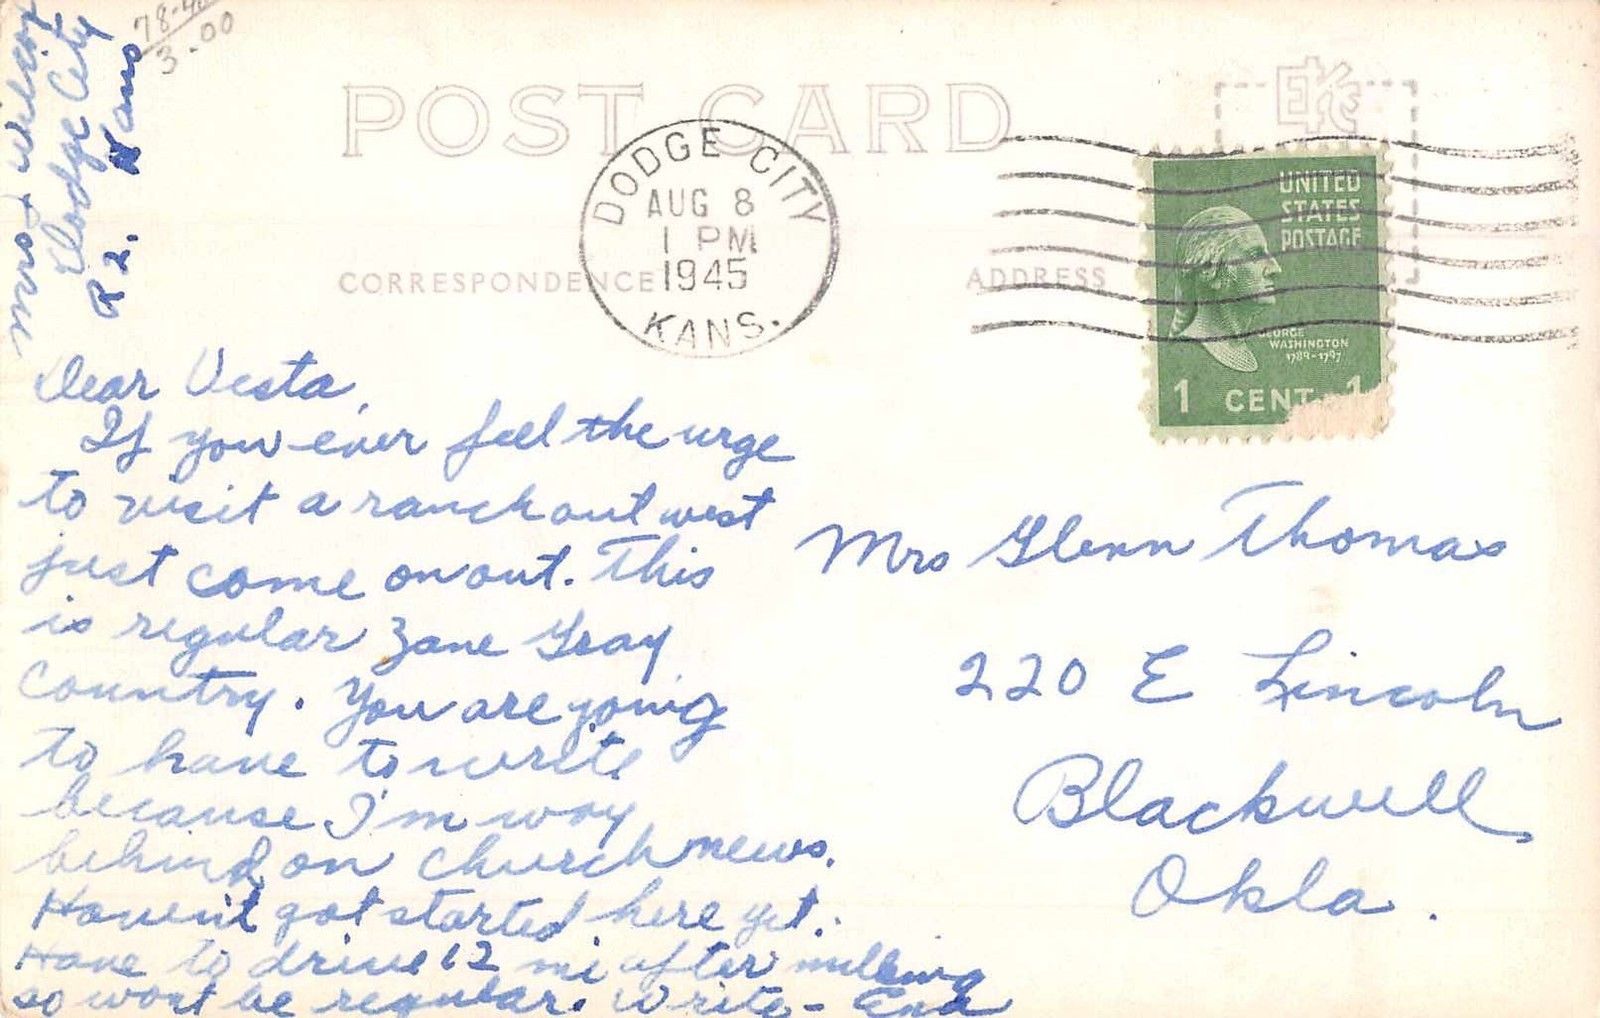 78-40
3.00
Mrs J Wilcox
Dodge City
R 2. Kans
POST CARD
EKC
DODGE CITY
AUG 8
1 PM
1945
KANS.
CORRESPONDENCE
ADDRESS
UNITED
STATES
POSTAGE
GEORGE
WASHINGTON
1789-1797
1 CENT 1
Dear Vesta,
If you ever feel the urge
to visit a ranch out west
just come on out. This
is regular Zane Gray
Country. You are going
to have to write
because I'm way
behind on church news.
Haven't got started here yet.
Have to drive 12 mi after milking
so wont be regular. Write - Ena
Mrs Glenn Thomas
220 E Lincoln
Blackwell,
Okla.